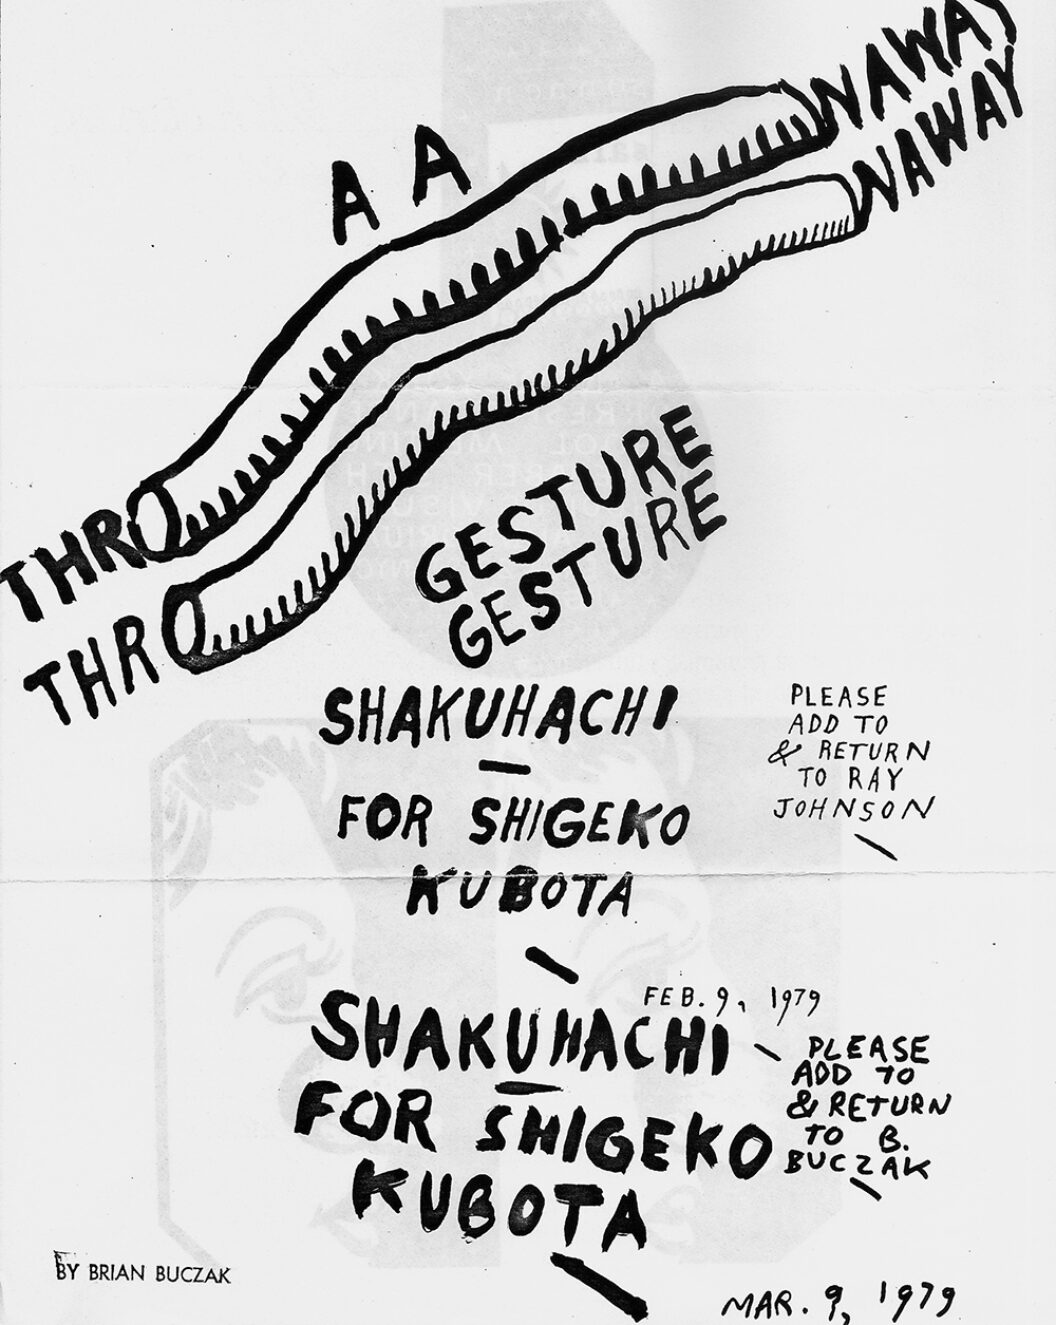 A A
THRO NAWAY
THRO NAWAY
GESTURE
GESTURE
SHAKUHACHI
—
FOR SHIGEKO
KUBOTA
PLEASE
ADD TO
& RETURN
TO RAY
JOHNSON
FEB. 9, 1979
SHAKUHACHI
FOR SHIGEKO
KUBOTA
PLEASE
ADD TO
& RETURN
TO B.
BUCZAK
BY BRIAN BUCZAK
MAR. 9, 1979